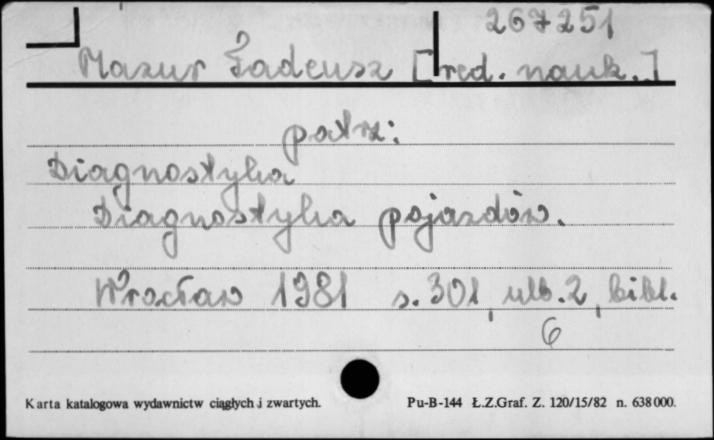 267251
Mazur Tadeusz [red. nauk.]
patrz:
Diagnostyka
Diagnostyka pojazdów.
Wrocław 1981 s. 301, ulb. 2, bibl.
6
Karta katalogowa wydawnictw ciągłych i zwartych. Pu-B-144 Ł.Z.Graf. Z. 120/15/82 n. 638000.